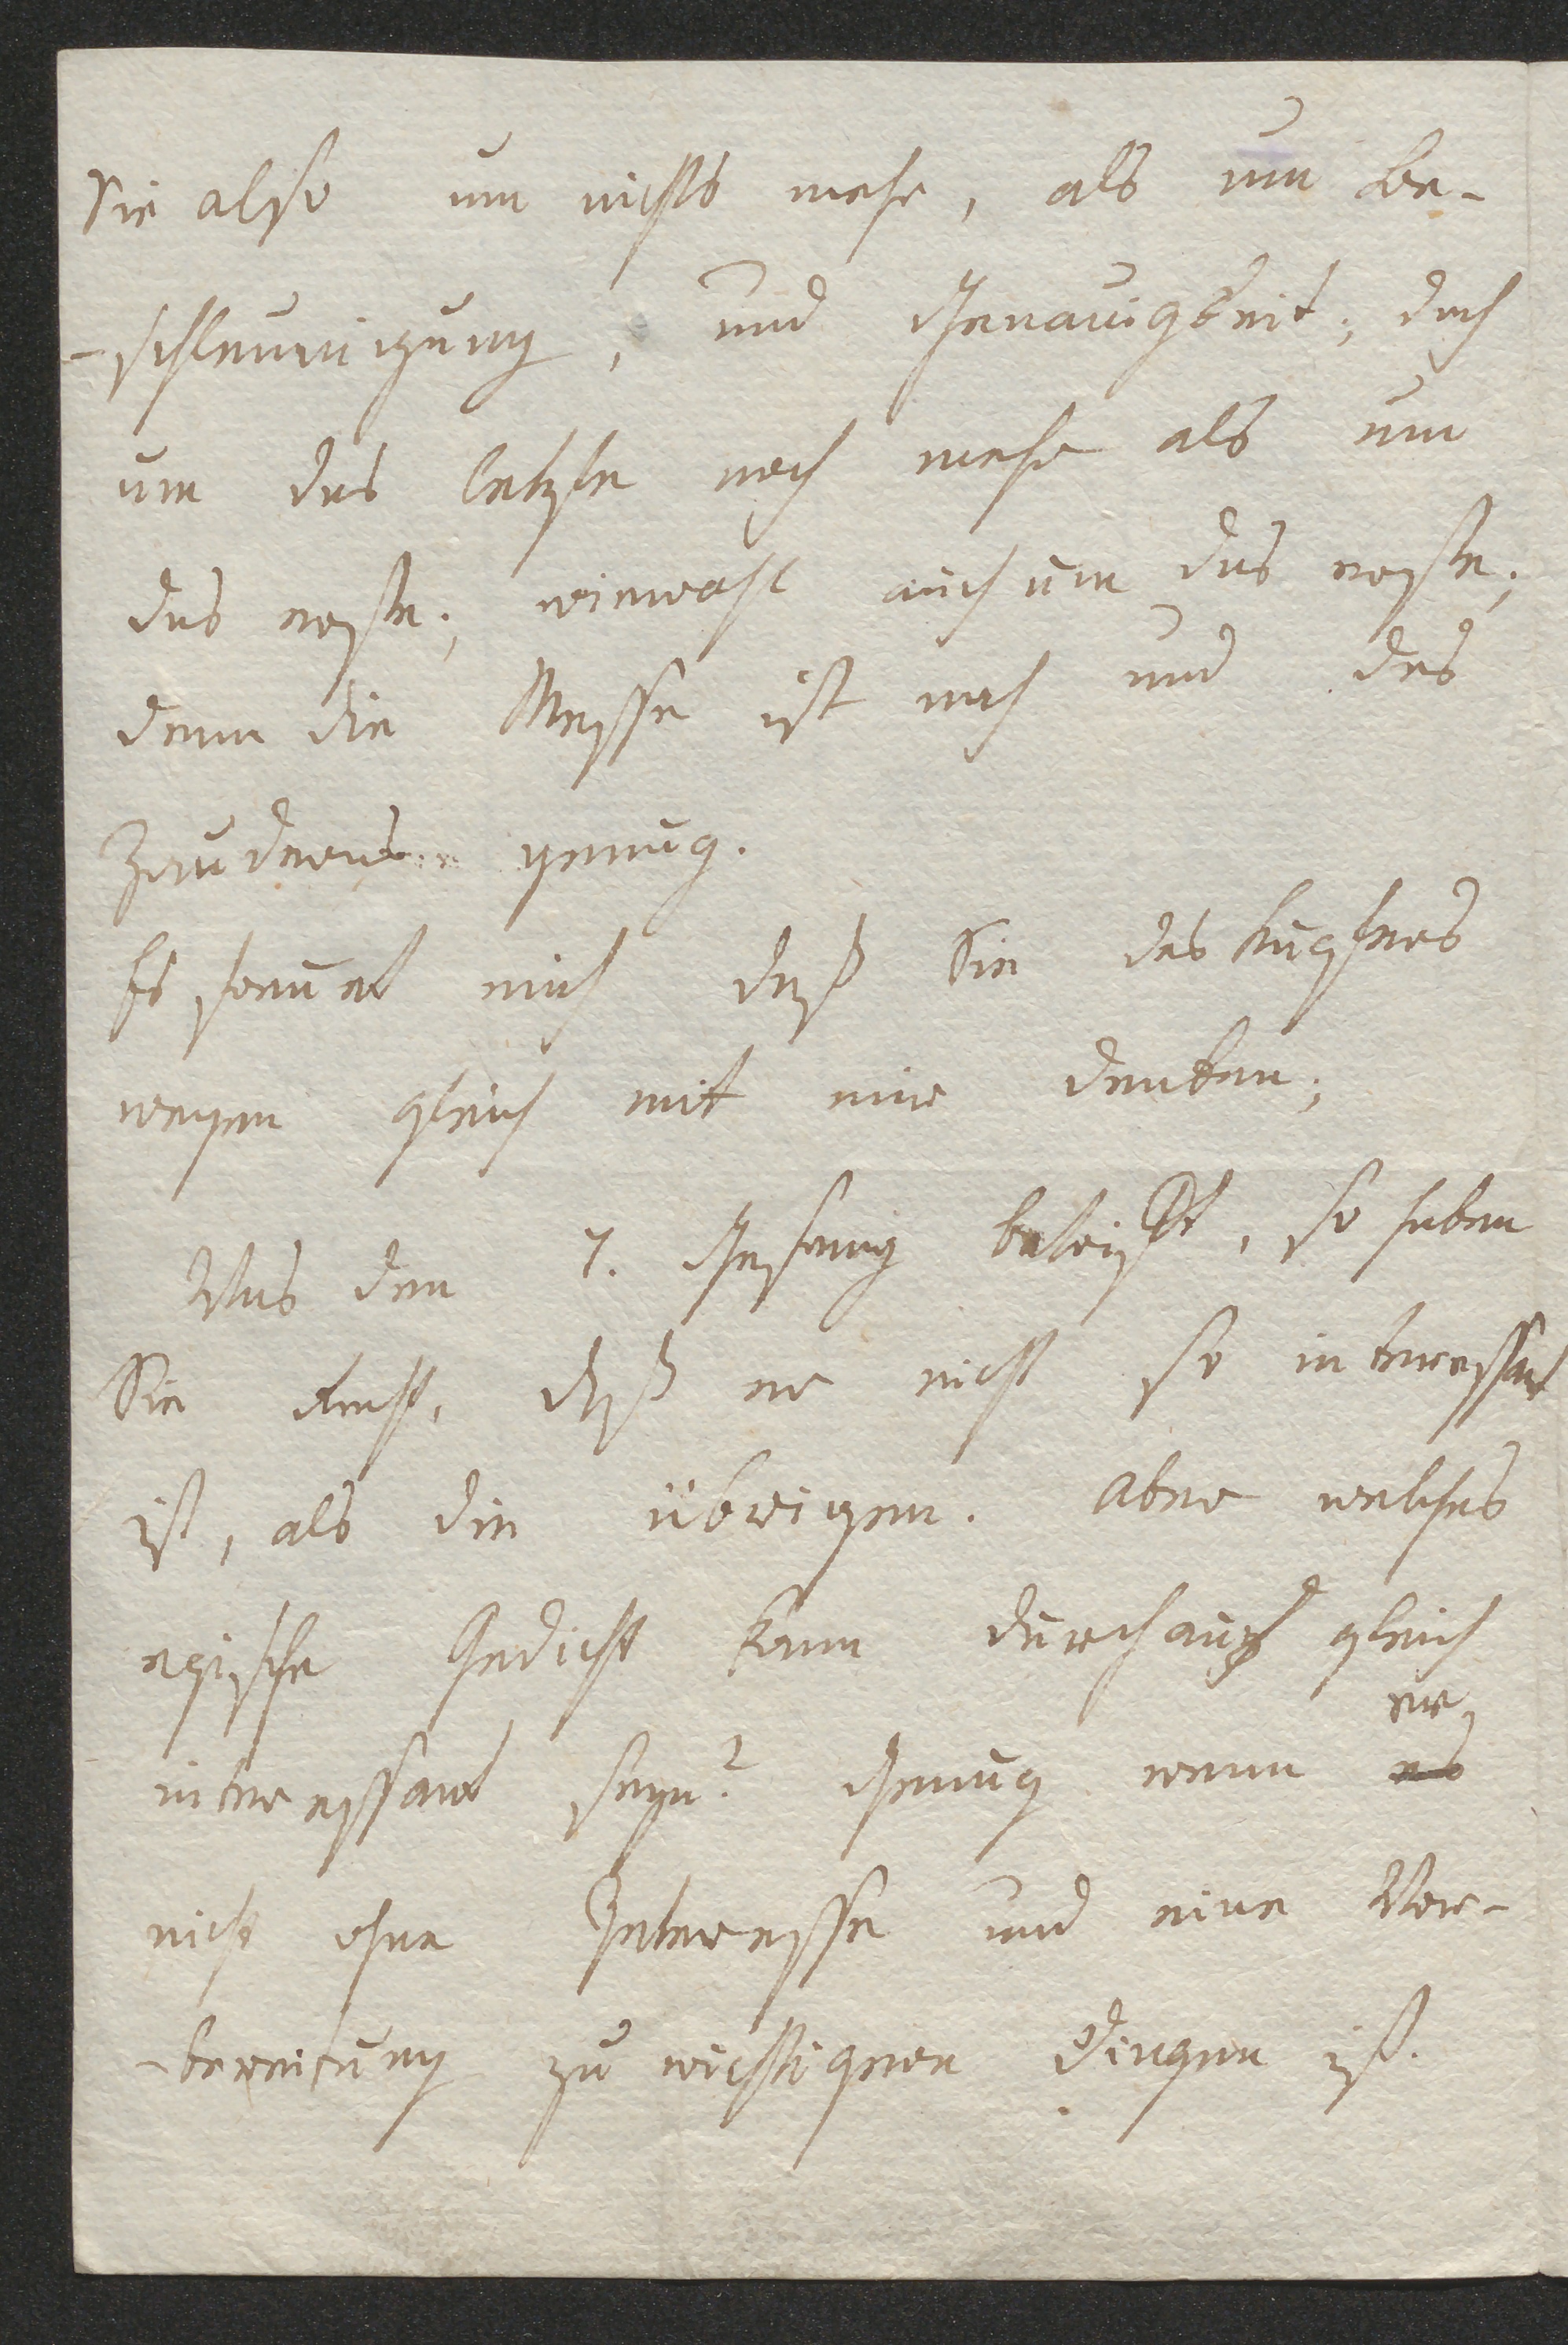 Sie also um nichts mehr, als um Be-
-schleunigung, und Genauigkeit; doch
um das letzte noch mehr als um
das erste; wiewohl auch um das erste;
denn die Messe ist nah und des
Zauderns genug.
Es freuet mich daß Sie des
wegen gleich mit mir denken;
Was den 7. Gesang betrifft, so haben
Sie Recht, daß er nicht so interessant
ist, als die übrigen. Aber welches
epische Gedicht kann durchaus gleich
er
interessant seyn? Genug wenn es
nicht ohne Interesse und eine Vor-
-bereitung zu wichtigern Dingen ist.